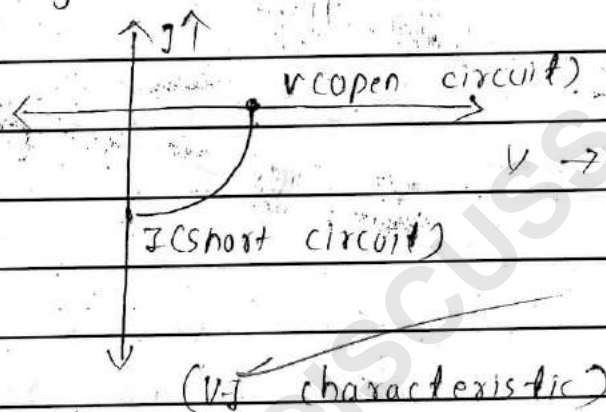 I↑
V(open circuit)
V →
I(short circuit)
(V-I characteristic)
DISCUSS